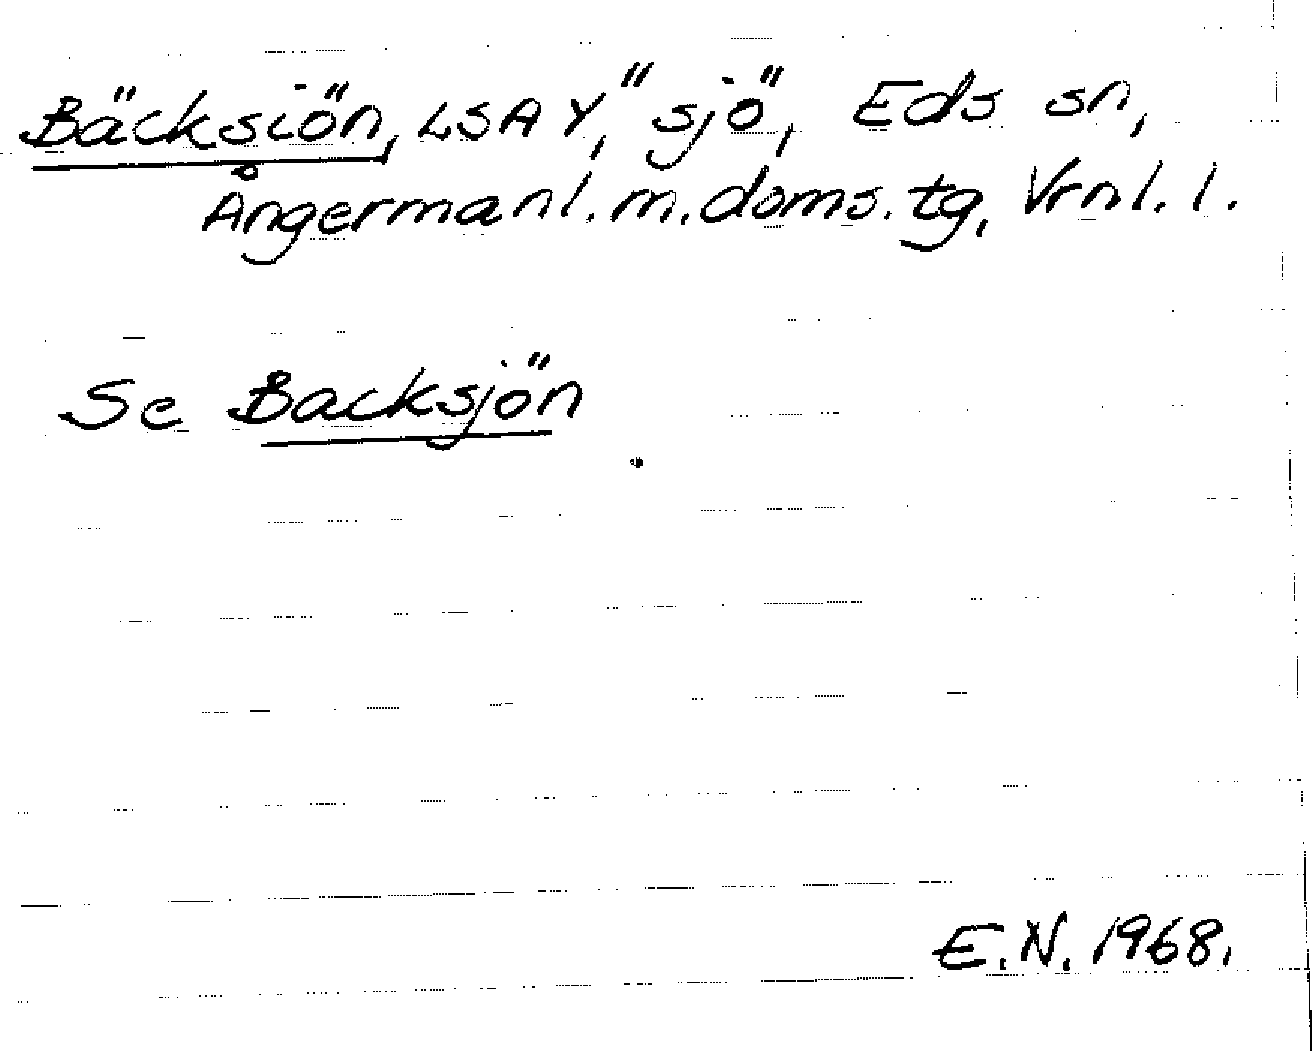 Bäcksiön, LSA Y, "sjö", Eds sn,
Ångermanl. m. doms. tg, Vrnl. l.
Se Backsjön
E.N. 1968.